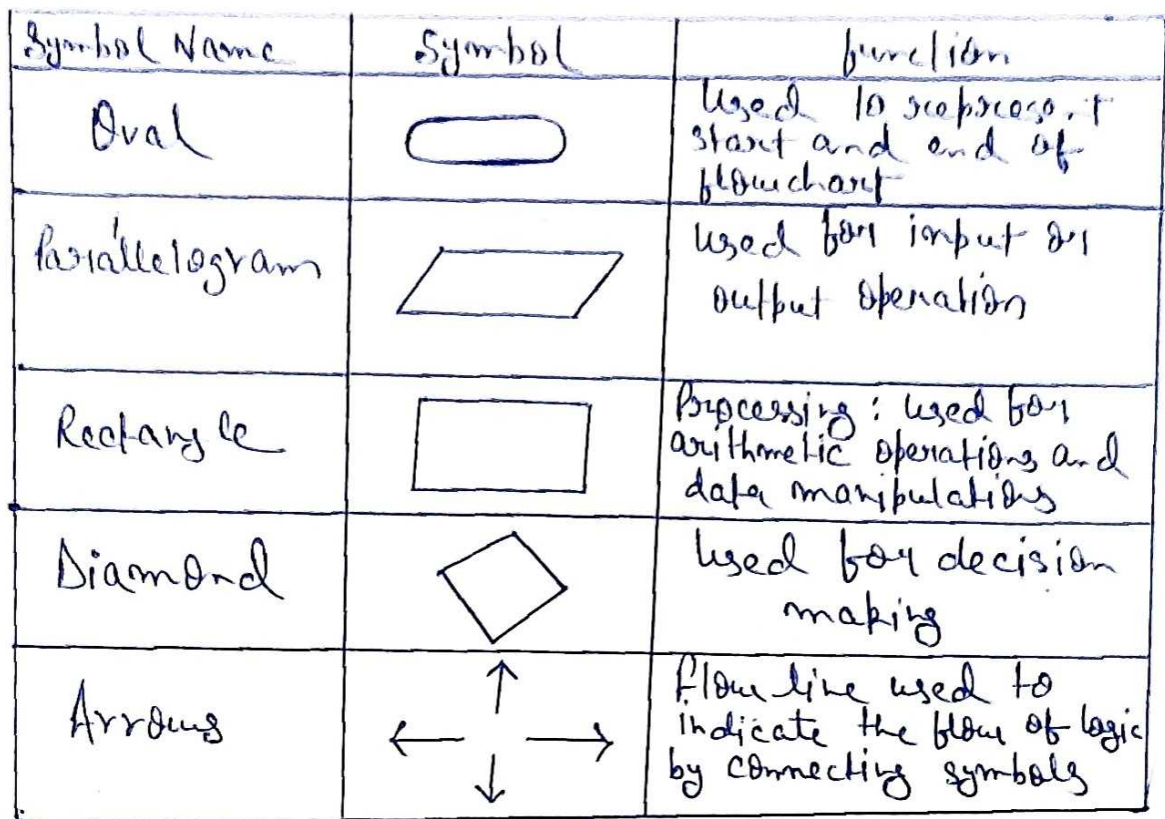 Symbol Name
Symbol
function
Oval
Used to represent
start and end of
flowchart
Parallelogram
used for input or
output operation
Rectangle
Processing : used for
arithmetic operations and
data manipulations
Diamond
Used for decision
making
Arrows
flow line used to
indicate the flow of logic
by connecting symbols